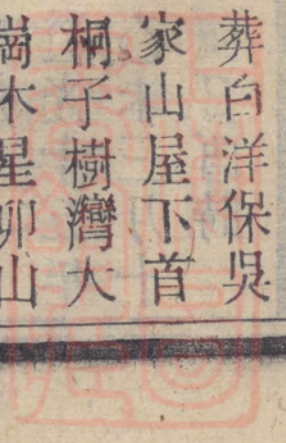 葬白洋保吳
家山屋下首
桐子樹灣大
崗木星卯山